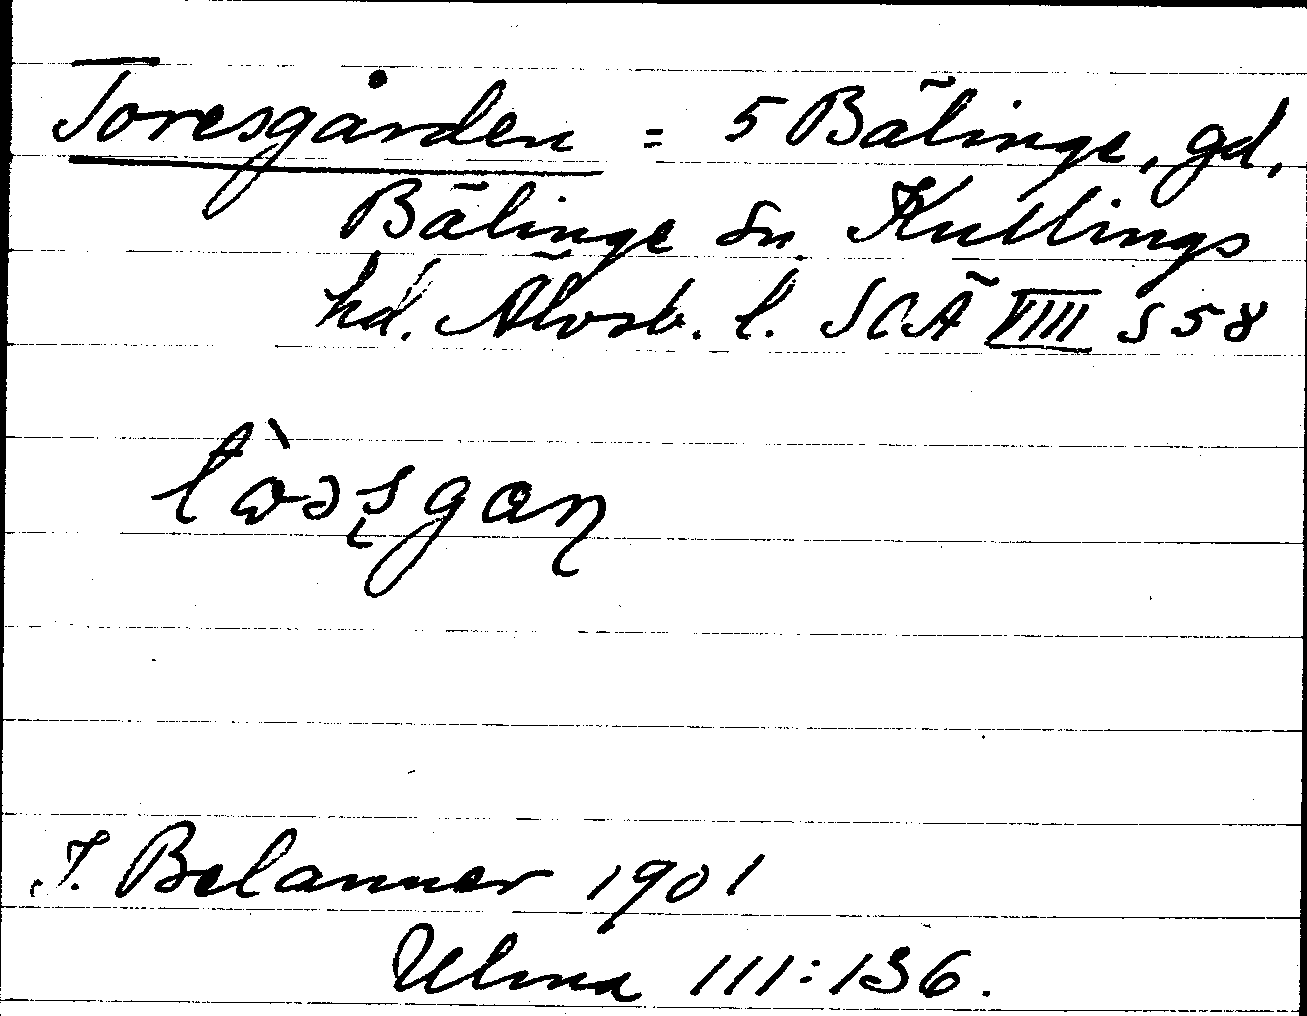 Toresgården = 5 Bälinge, gd,
Bälinge sn. Kullings
hd. Älvsb. l. SOÄ VIII S 58
J. Belanner 1901
Ulma 111:136.